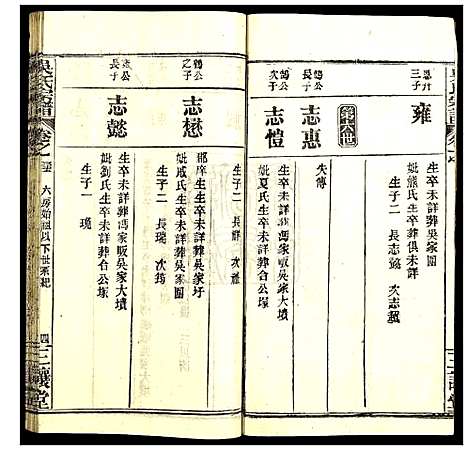 三子
雍
生卒未詳葬吳家園
妣熊氏生卒葬俱未詳
生子二 長志懿 次志
第十六世
鶴公
長子
志惠
失傳
鶴公
次子
志愷
生卒未詳葬馮家畈吳家大墳
妣夏氏生卒未詳葬台公塚
生子二 長 次
鶴公
之子
志懋
邵庠生生卒未詳葬吳家圩
妣戚氏生卒未詳葬吳家園
生子二 長瑞 次筠
公
長子
志懿
生卒未詳葬馮家畈吳家大墳
妣劉氏生卒未詳葬台公塚
生子一 
吳氏宗譜
卷之
六房始祖以下世系紀
四
三讓堂